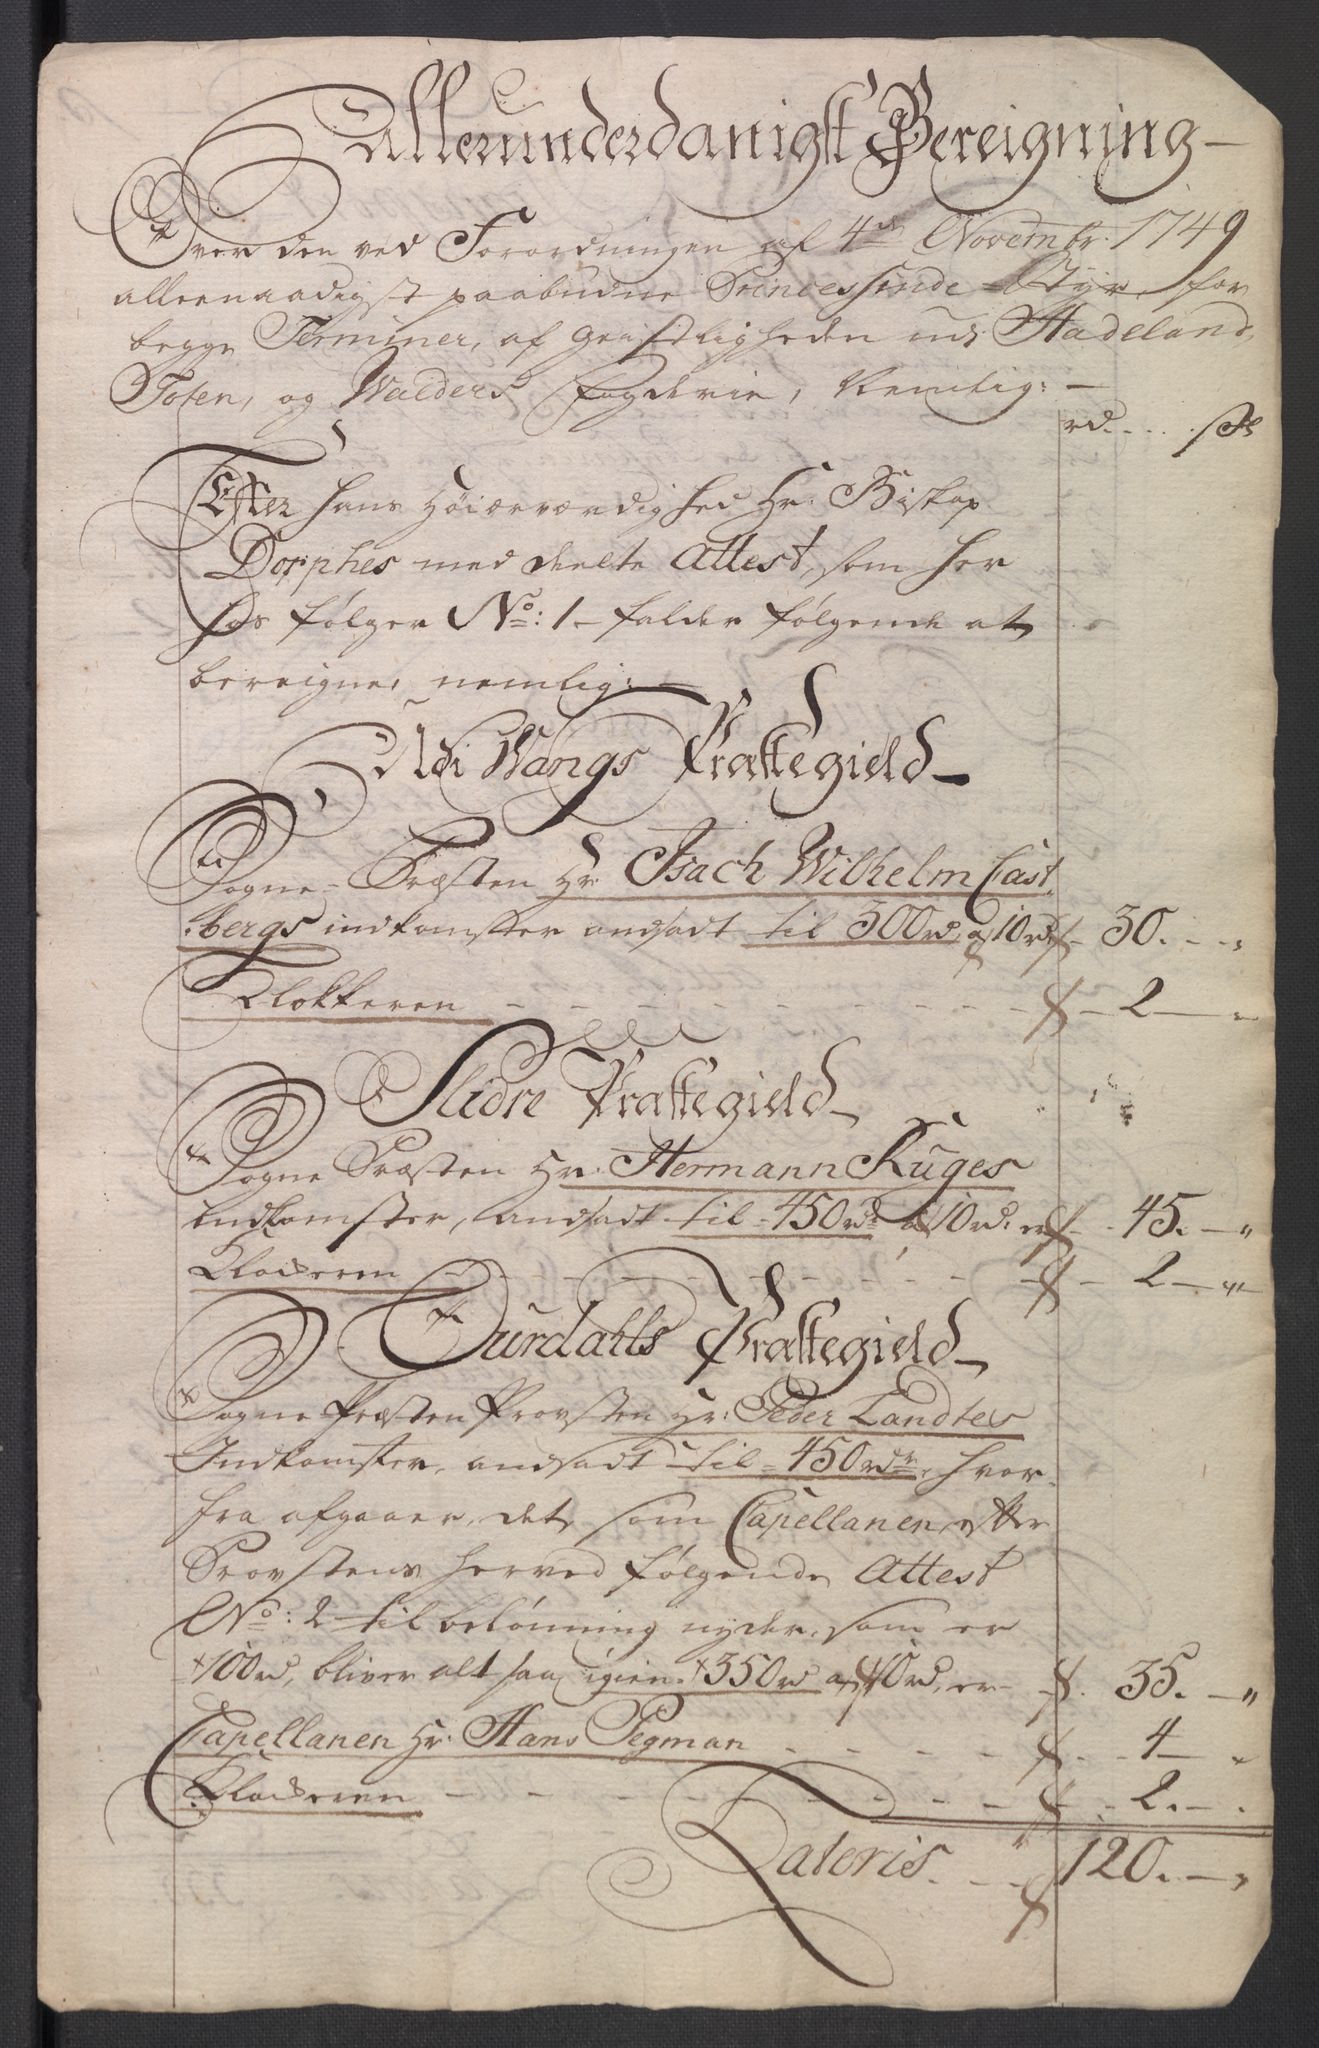 Allerunderdanigst Bereigning
Over den ved Forordningen af 4de Novembr: 1749
allernaadigst paabudne Princessinde Styr, for
begge Terminer, af Geistligheden udi Hadeland,
Toten, og Walders Fogderie, Nemlig:
rd. ... ß
Efter Hans Høiærværdighed Hr: Biskop
Dorphes med deelte Attest, som her
hos følger No: 1 falder følgende at
bereigne, nemlig:
Udi Wangs Præstegield
Sogne-Præsten Hr Isach Wilhelm Cast-
bergs indkomster ansadt til 300rd, a 10rd 30. - "
Klokkeren - - - 2 - "
Slidre Præstegield
Sogne Præsten Hr: Hermann Ruges
indkomster, ansadt til 450rd: a 10rd: er 45. - "
Klockeren - - - 2 - "
Ourdahls Præstegield
Sogne Præsten Provsten Hr: Peder Landtes
Indkomster, ansadt til 450rdr, hvor-
fra afgaaer, det, som Capellanen, efter
Provstens herved følgende Attest
No: 2 til belønning nyder, som er
100rd, bliver alt saa igien 350rd a 10rd, er 35. - "
Capellanen Hr: Hans Pegman - - - 4 - "
Klockeren - - - 2. - "
Lateris. - - 120. - "